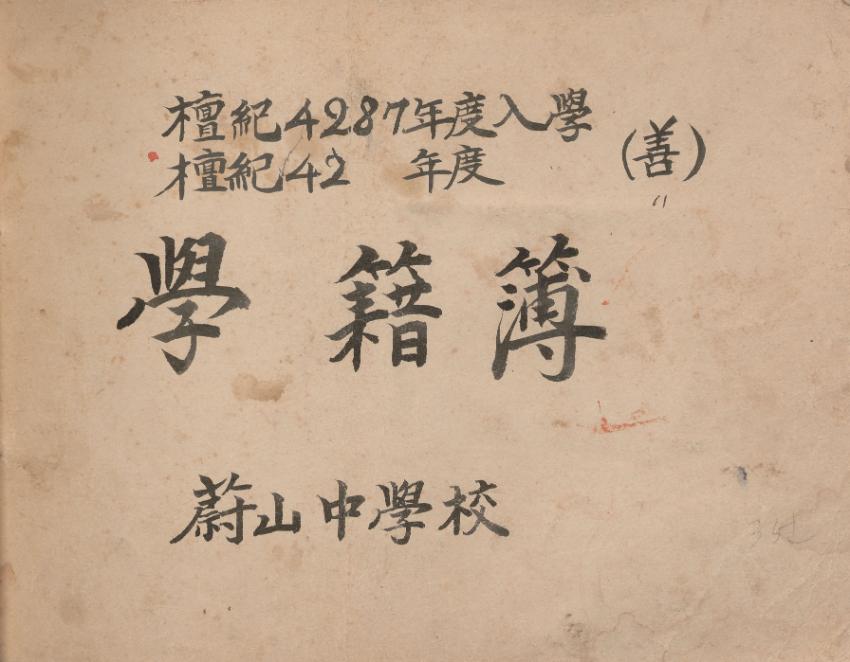 檀紀4287年度入學
檀紀42 年度
(善)
〃
學籍簿
蔚山中學校